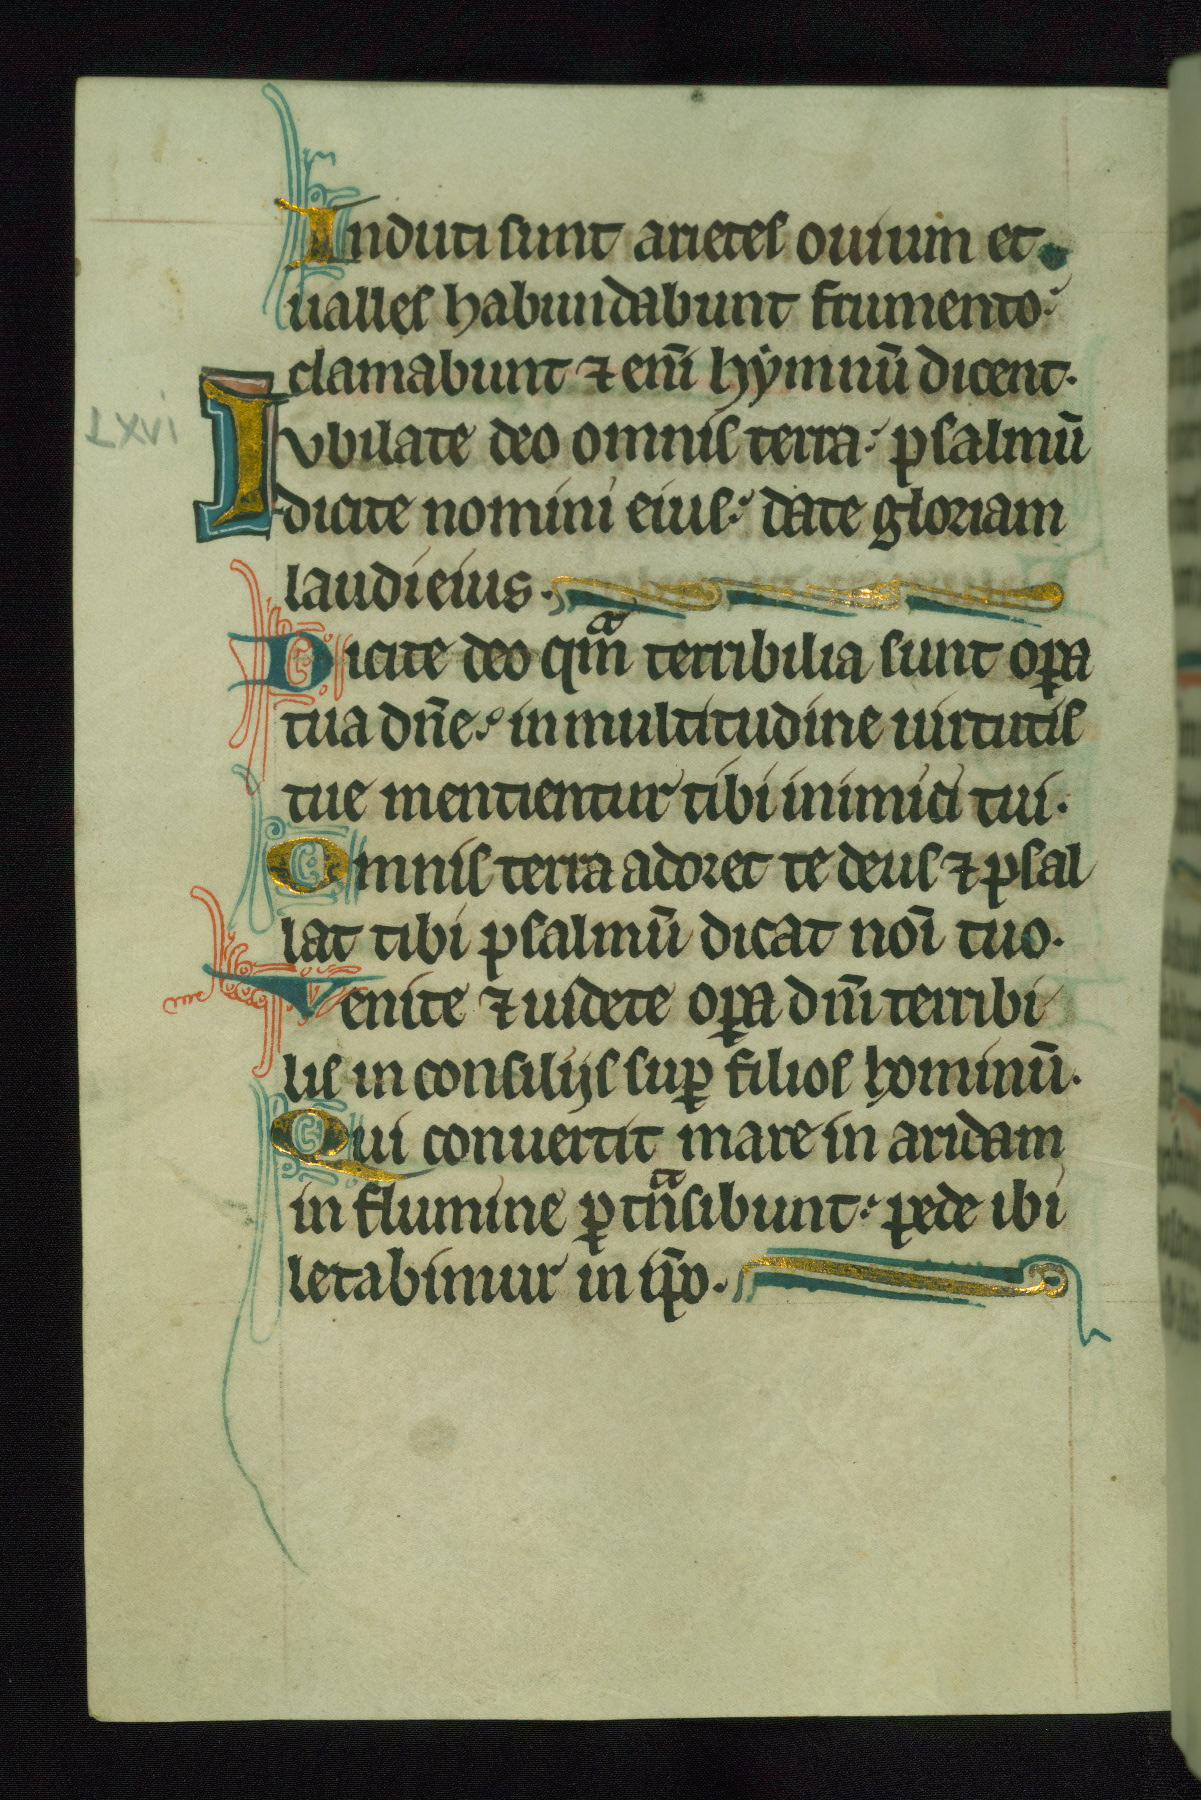 Induti sunt arietes ouium et
ualles habundabunt frumento:
clamabunt ⁊ eni̅ hẏmnu̅ dicent.
LXVI
Iubilate deo omnis terra: psalmu̅
dicite nomini eius: date gloriam
laudi eius.
Dicite deo qᷓm terribilia sunt oꝑa
tua dn̅e: in multitudine uirtutis
tue mentientur tibi inimici tui.
Omnis terra adoret te deus ⁊ psal
lat tibi psalmu̅ dicat noi̅ tuo.
Venite ⁊ uidete oꝑa dn̅i terribi
lis in consilijs suꝑ filios hominu̅.
Qui conuertit mare in aridam
in flumine ꝑtnᷓsibunt: pede ibi
letabimur in ip̅o.